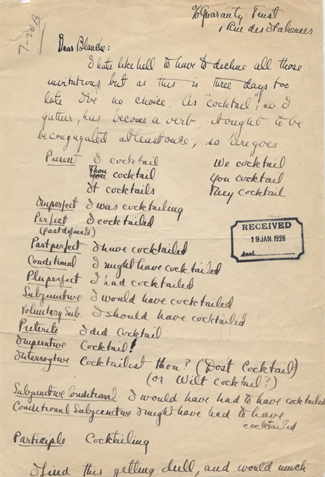 % Guaranty Trust
1, Rue des Italiennes
7-20B
Dear Blanche:
I hate like hell to have to decline all those
invitations but as this is three days too
late I've no choice. As "cocktail", so I
gather, has become a verb, it ought to be
conjugated at least once, so here goes
Present I cocktail We cocktail
Thou cocktail You cocktail
It cocktails They cocktail
Imperfect I was cocktailing
Perfect I cocktailed
(past definite)
Past perfect I have cocktailed
Conditional I might have cocktailed
Pluperfect I had cocktailed
Subjunctive I would have cocktailed
Voluntary Sub. I should have cocktailed
Preterite I did cocktail
Imperative Cocktail!
Interrogtive Cocktailest thou? (Dost Cocktail?)
(or Wilt cocktail?)
Subjunctive Conditional I would have had to have cocktailed
Conditional Subjunctive I might have had to have
cocktailed
Participle Cocktailing
I find this getting dull, and would much
RECEIVED
19 JAN. 1928